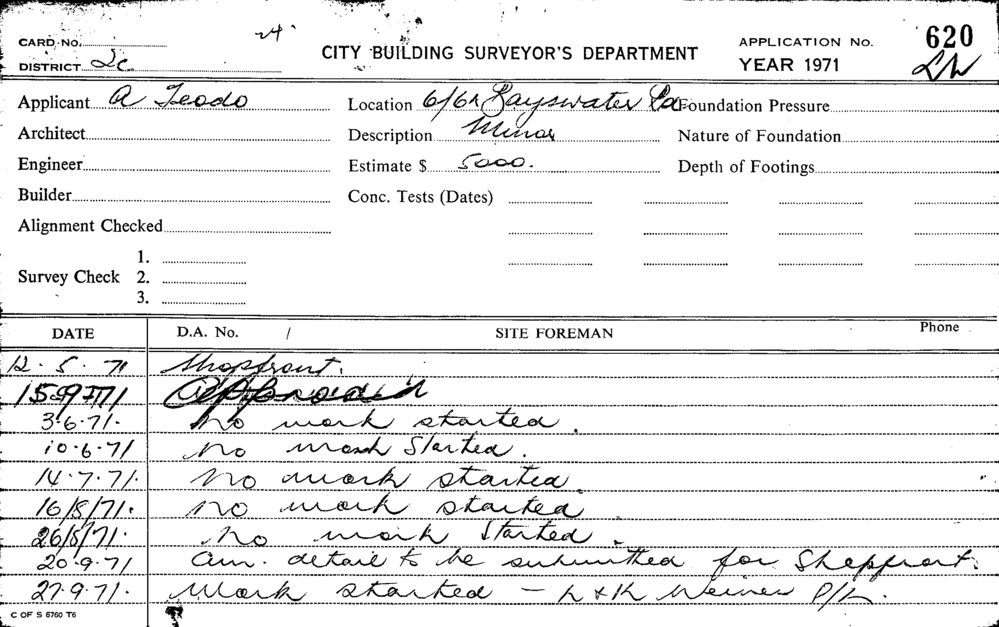 CARD NO. 24
CITY BUILDING SURVEYOR'S DEPARTMENT
APPLICATION No. 620
DISTRICT 2c
YEAR 1971
Applicant A Teodo
Location 6/6A Bayswater Rd
Foundation Pressure
Architect
Description Minor
Nature of Foundation
Engineer
Estimate $ 5000.
Depth of Footings
Builder
Conc. Tests (Dates)
Alignment Checked
Survey Check 1.
2.
3.
DATE D.A. No. / SITE FOREMAN Phone
12.5.71 Shopfront.
Approved
3.6.71. No work started.
10.6.71 No work Started.
14.7.71. No work started.
16/8/71. No work started
26/8/71. No work Started.
20.9.71 Am. detail to be submitted for Shopfront.
27.9.71. Work started - L & K Weiner P/L.
C OF S 6760 T6